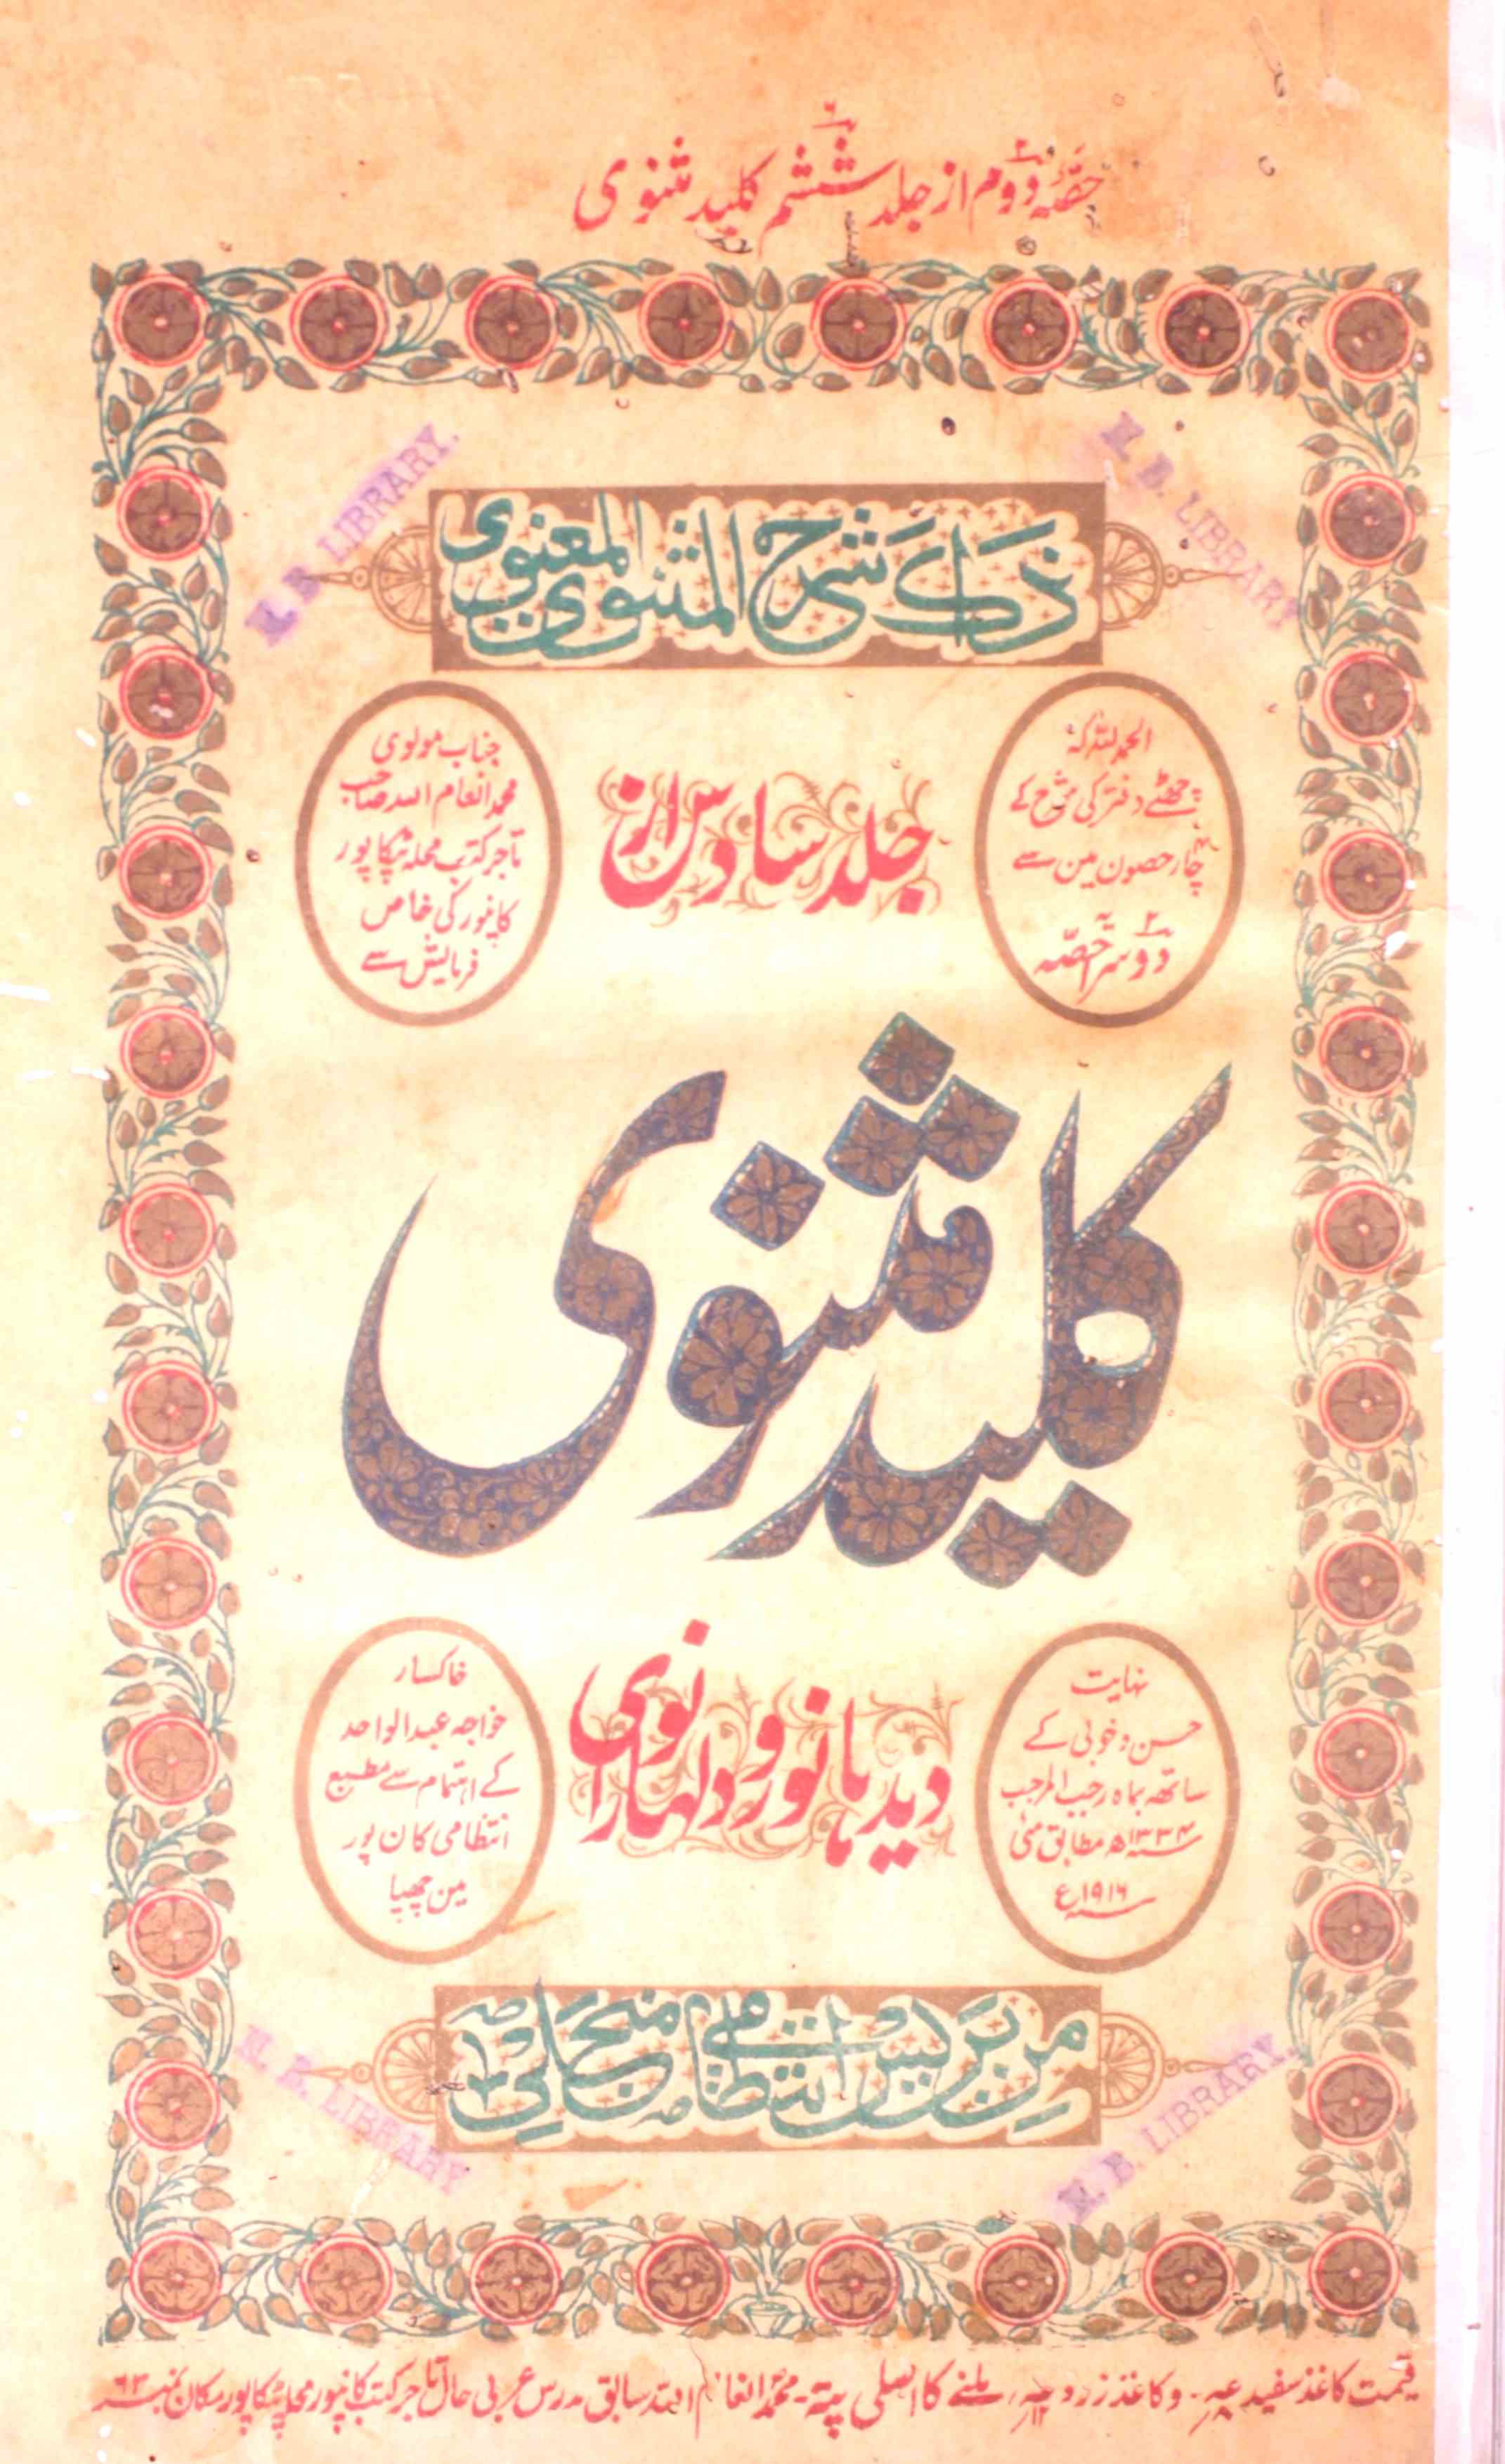 حصّہ دوم از جلد ششم کلید مثنوی
M. B. LIBRARY.
M. B. LIBRARY
شرح المثنوی المعنوی
الحمد للہ کہ
چھٹے دفتر کی شرح کے
چار حصون مین سے
۲
دوسرا حصّہ
جلد سادس از
جناب مولوی
محمد انعام اللہ صاحب
تاجر کتب محلہ ٹپکاپور
کانپور کی خاص
فرمایش سے
کلید مثنوی
نہایت
حسن و خوبی کے
ساتھ بماہ رجب المرجب
۱۳۳۴ھ مطابق مئی
۱۹۱۶ع
دیدہا نور و دلہا را نوی
خاکسار
خواجہ عبدالواحد
کے اہتمام سے مطبع
انتظامی کان پور
مین چھپا
من پریس انتظامی
M. B. LIBRARY
M. B. LIBRARY.
قیمت کاغذ سفید - و کاغذ زرد ملنے کا اصلی پتہ - محمد انعام اللہ سابق مدرس عربی حال تاجر کتب کانپور محلہ ٹپکاپور مکان نمبر ۶۳